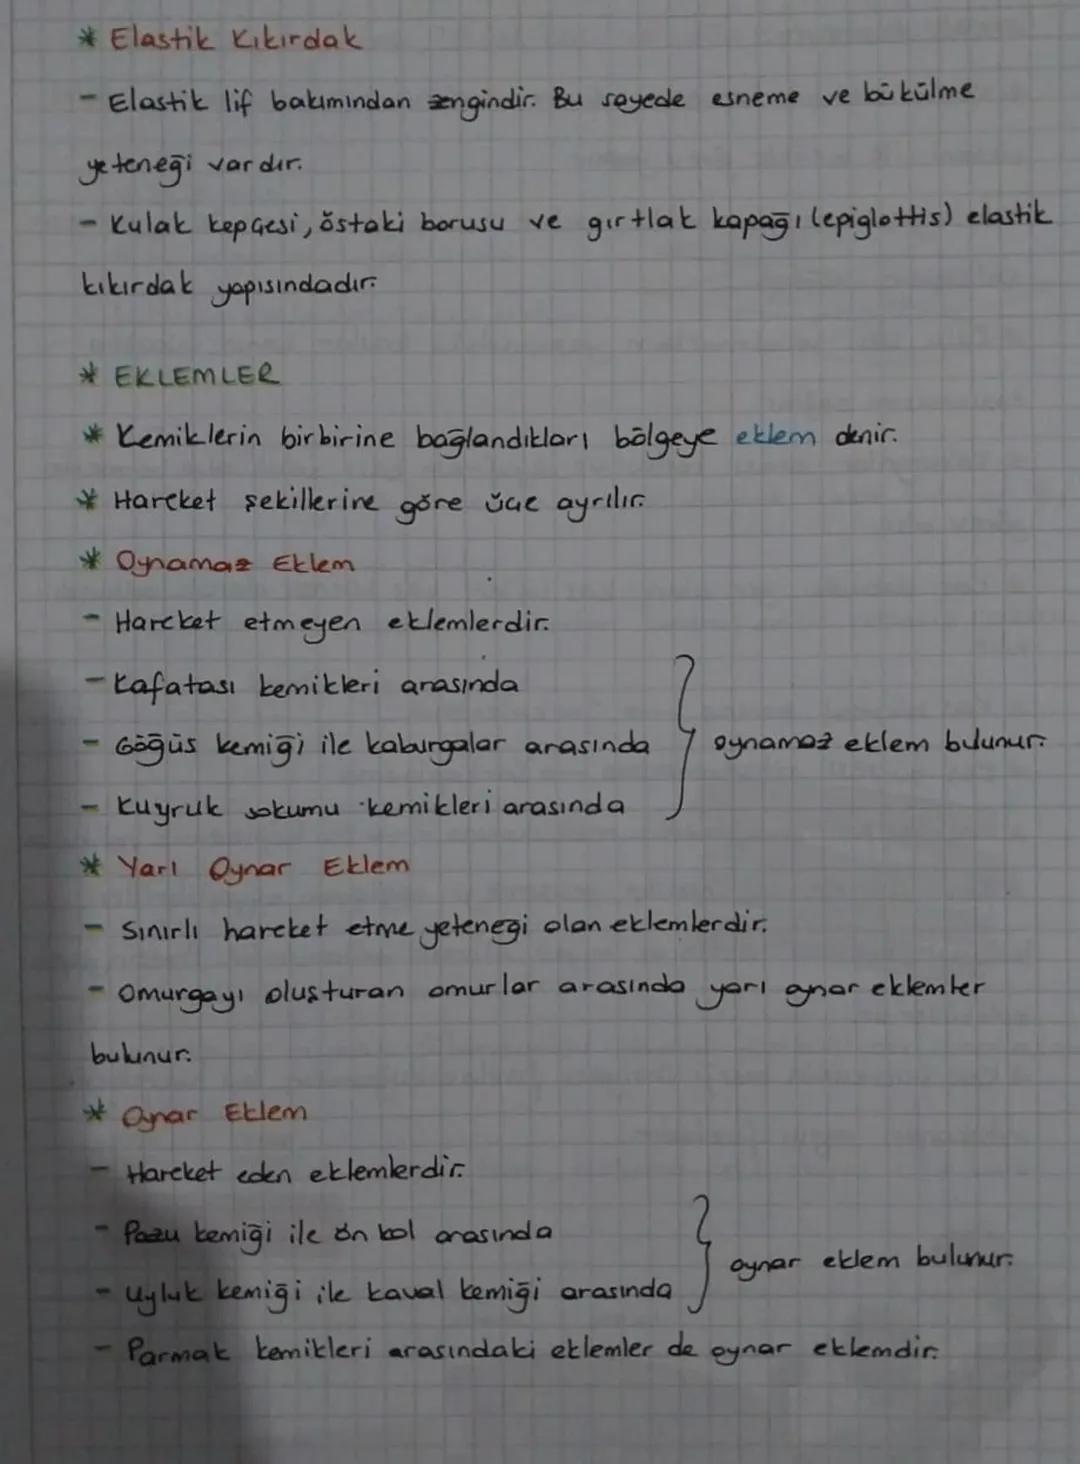 * Elastik Kıkırdak
- Elastik lif bakımından zengindir. Bu sayede esneme ve bükülme
yeteneği vardır.
- Kulak kepçesi, östaki borusu ve gırtlak kapağı (epiglottis) elastik
kıkırdak yapısındadır.
* EKLEMLER
* Kemiklerin birbirine bağlandıkları bölgeye eklem denir.
* Hareket şekillerine göre üçe ayrılır.
* Oynamaz Eklem
- Hareket etmeyen eklemlerdir.
- Kafatası kemikleri arasında
- Göğüs kemiği ile kaburgalar arasında } oynamaz eklem bulunur.
- Kuyruk sokumu kemikleri arasında
* Yarı Oynar Eklem
- Sınırlı hareket etme yeteneği olan eklemlerdir.
- Omurgayı oluşturan omurlar arasında yarı oynar eklemler
bulunur.
* Oynar Eklem
- Hareket eden eklemlerdir.
- Pazu kemiği ile ön kol arasında
- Uyluk kemiği ile kaval kemiği arasında } oynar eklem bulunur.
- Parmak kemikleri arasındaki eklemler de oynar eklemdir.